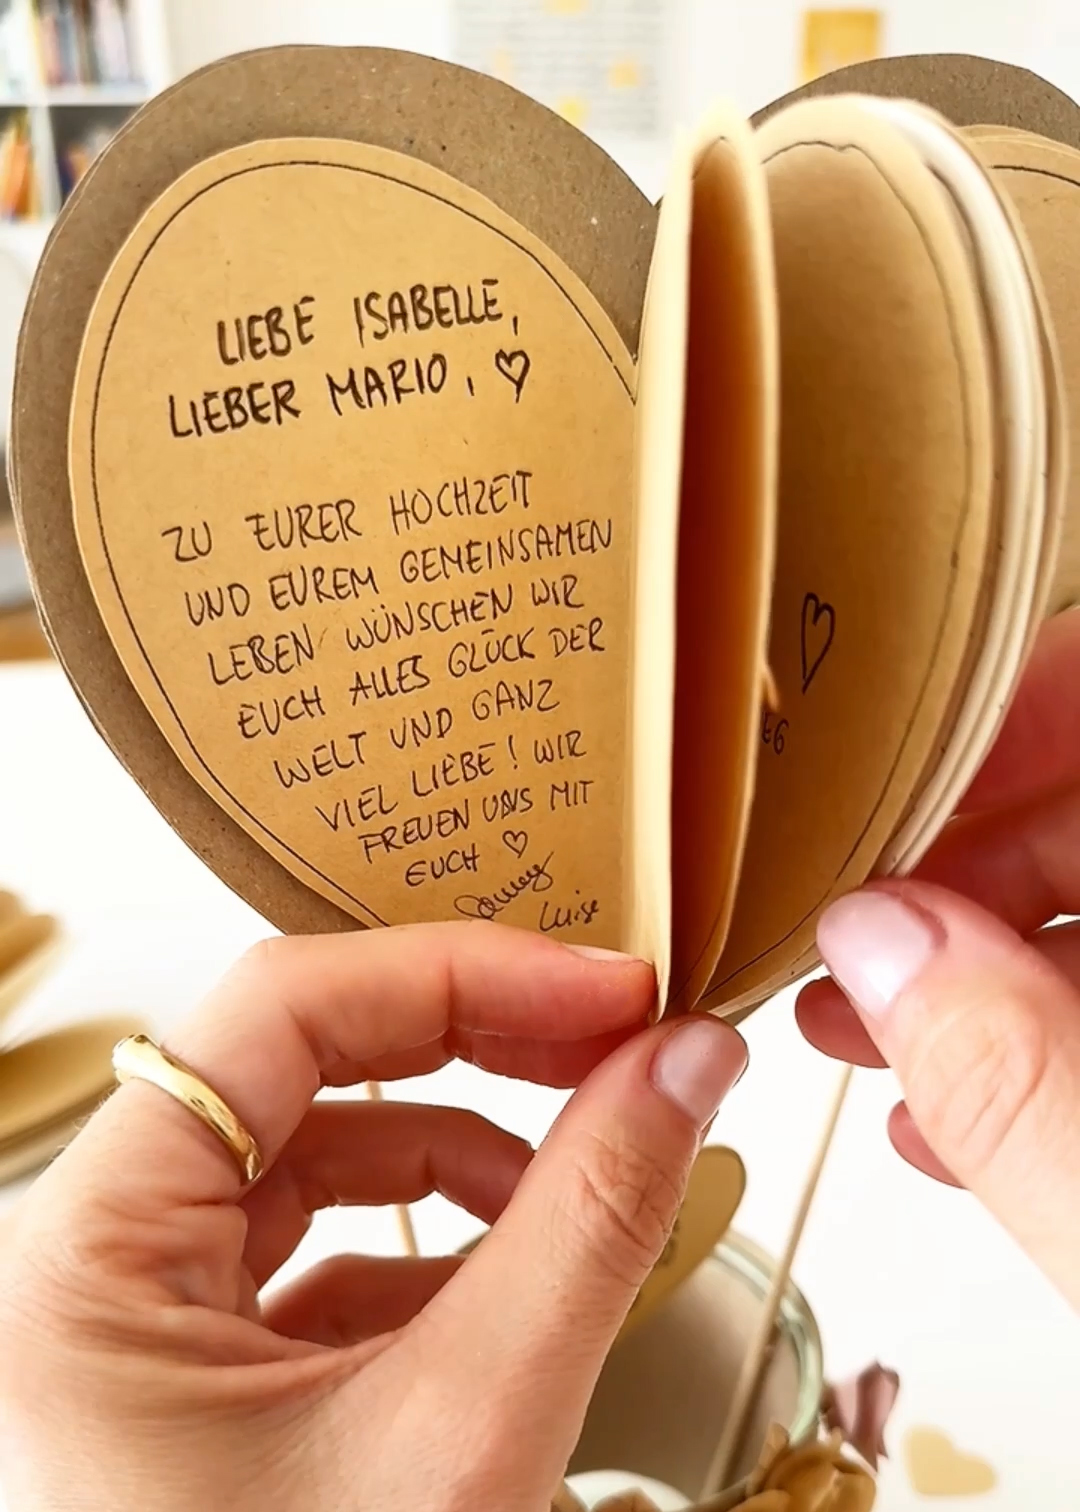 LIEBE ISABELLE,
LIEBER MARIO, ♡
ZU EURER HOCHZEIT
UND EUREM GEMEINSAMEN
LEBEN WÜNSCHEN WIR
EUCH ALLES GLÜCK DER
WELT UND GANZ
VIEL LIEBE! WIR
FREUEN UNS MIT
EUCH ♡
Luise
♡
EG